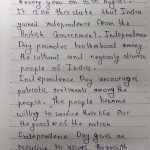 every year on 15th August.
It is on this date that India
gained independence from the
British Government. Independence
Day promotes brotherhood among
the cultural and regionaly diverse
people of India.
Independence Day encourages
patriotic sentiments among the
people. the people become
willing to sacrifice their life for
the good of the nation.
Independence Day gives an
occasion to the